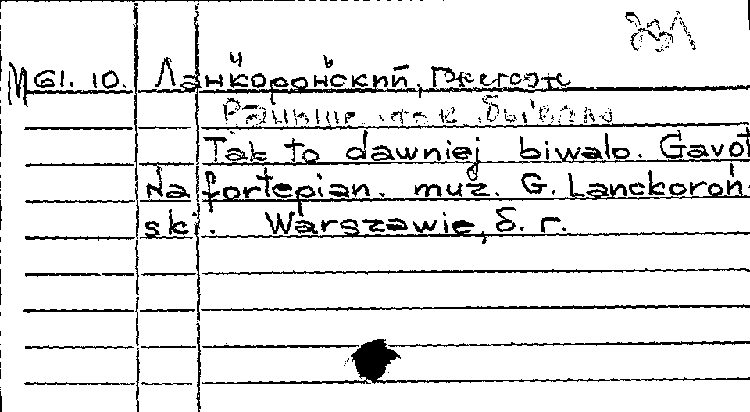 М 61. 10. Ланцкороньский, Гжегож
Раньше так бывало
Tak to dawniej biwalo. Gavot
na fortepian. muz. G. Lanckoroń-
ski. Warszawie, б. г.